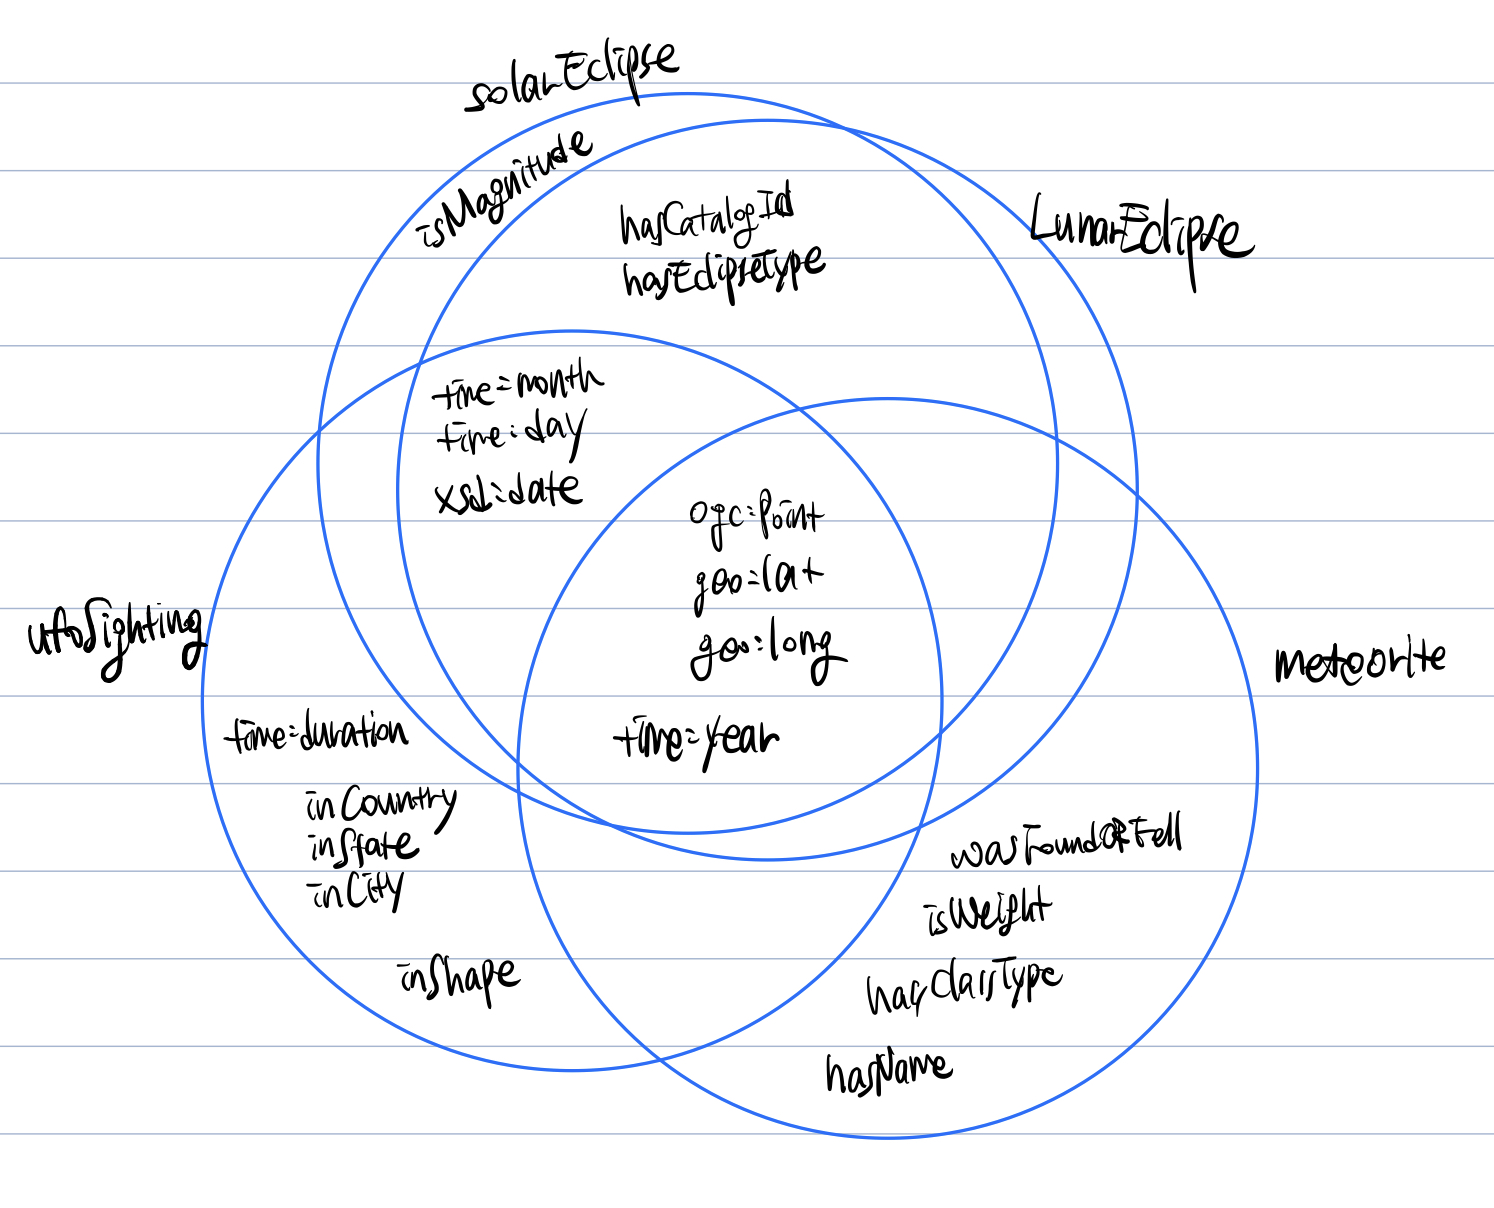 solarEclipse
isMagnitude
hasCatalogId
hasEclipseType
LunarEclipse
time:month
time:day
xsd:date
ogc:Point
geo:lat
geo:long
time:year
ufoSighting
meteorite
time:duration
inCountry
inState
inCity
inShape
wasFoundORFell
isWeight
hasClassType
hasName